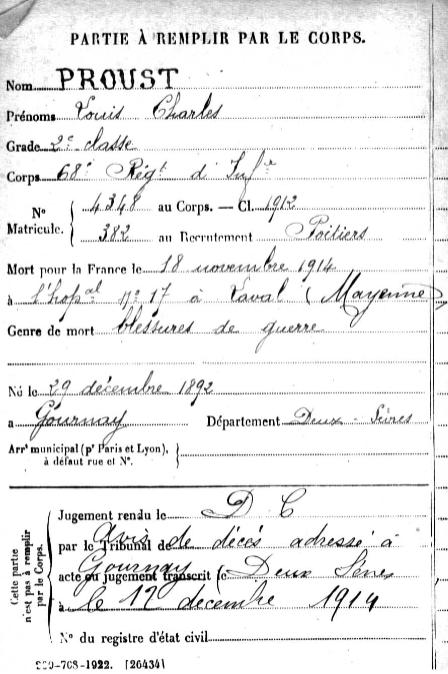 PARTIE À REMPLIR PAR LE CORPS.
Nom PROUST
Prénoms Louis Charles
Grade 2e classe
Corps 68e Régt d'Infie
N° Matricule. { 4348 au Corps. — Cl. 1912
382 au Recrutement Poitiers
Mort pour la France le 18 novembre 1914
à l'hopal n° 17 à Laval (Mayenne)
Genre de mort blessures de guerre
Né le 29 décembre 1892
à Gournay Département Deux-Sèvres
Arrt municipal (pr Paris et Lyon), à défaut rue et N°. }
Cette partie n'est pas à remplir par le Corps.
Jugement rendu le D C
par le Tribunal de Avis de décès adressé à
acte ou jugement transcrit le Gournay Deux Sèvres
à le 12 décembre 1914
N° du registre d'état civil
[26434]